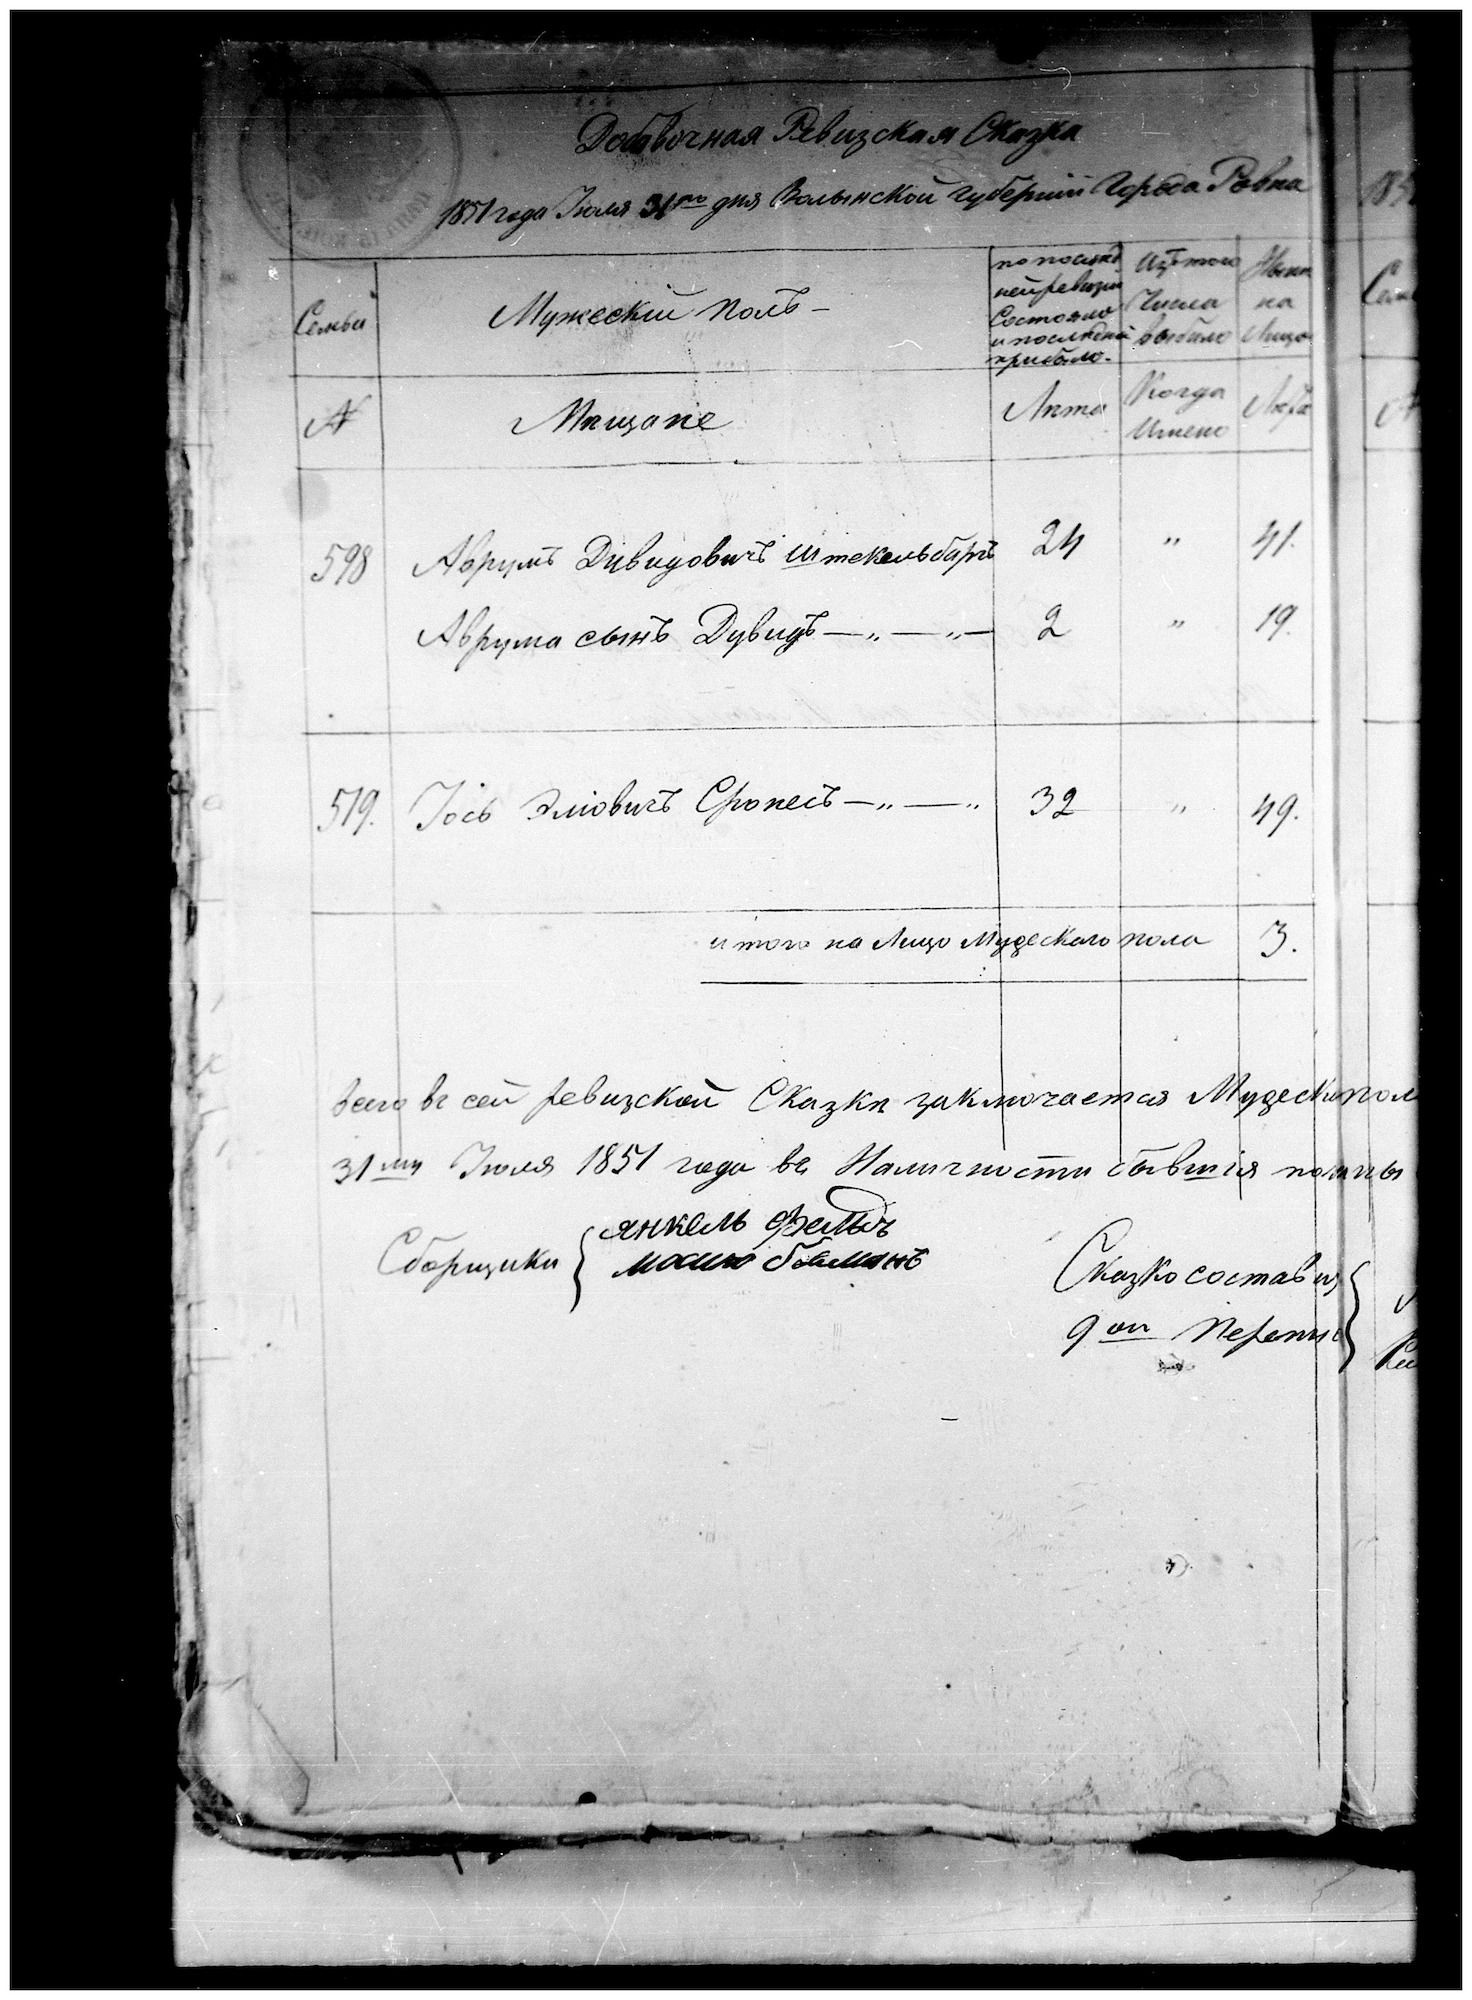 Добавочная Ревизская Сказка
1851 года Июля 31го дня Волынской Губернiи Города Ровна
Семьи
Мужескiй полъ
по послед
ней ревизiи
состояло
и последней
прибыло.
Изъ того
Числа
выбыло
Ныне
на
Лицо
№
Мещане
Лета
Когда
Имено
Лета
598 Аврумъ Дувидовичъ Штекельбаргъ 24 " 41.
Аврума сынъ Дувидъ — „ — „ — 2 " 19.
519. Iось Элiовичъ Сропесъ — „ — „ 32 " 49.
итого на Лицо Мужескаго пола 3.
всего в сей ревизской Сказки заключается Мужеска пол
31му Июля 1851 года в Наличности бывшiя
Сборщики { янкель
Сказко состав
9ой Перепис